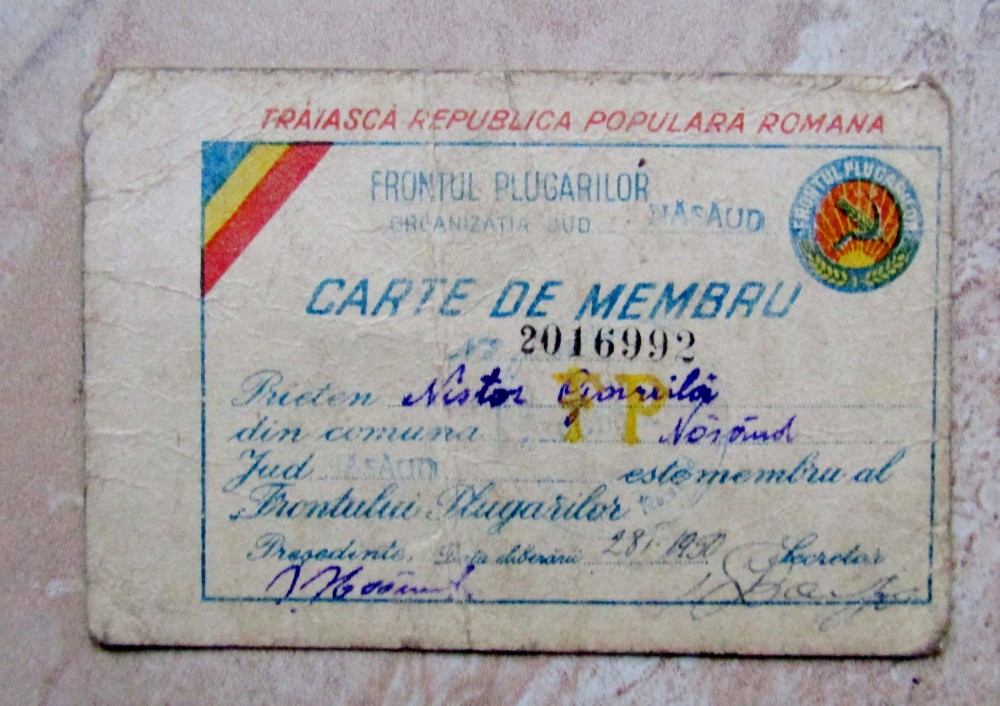 TRĂIASCĂ REPUBLICA POPULARĂ ROMANĂ
FRONTUL PLUGARILOR
FRONTUL PLUGARILOR
ORGANIZAȚIA JUD NĂSĂUD
CARTE DE MEMBRU
Nº 2016992
Prieten Nistor Gavrilă
FP
din comuna Năsăud
Jud NĂSĂUD este membru al
Frontului Plugarilor
Președinte, Data eliberării 28 I 1950 Secretar